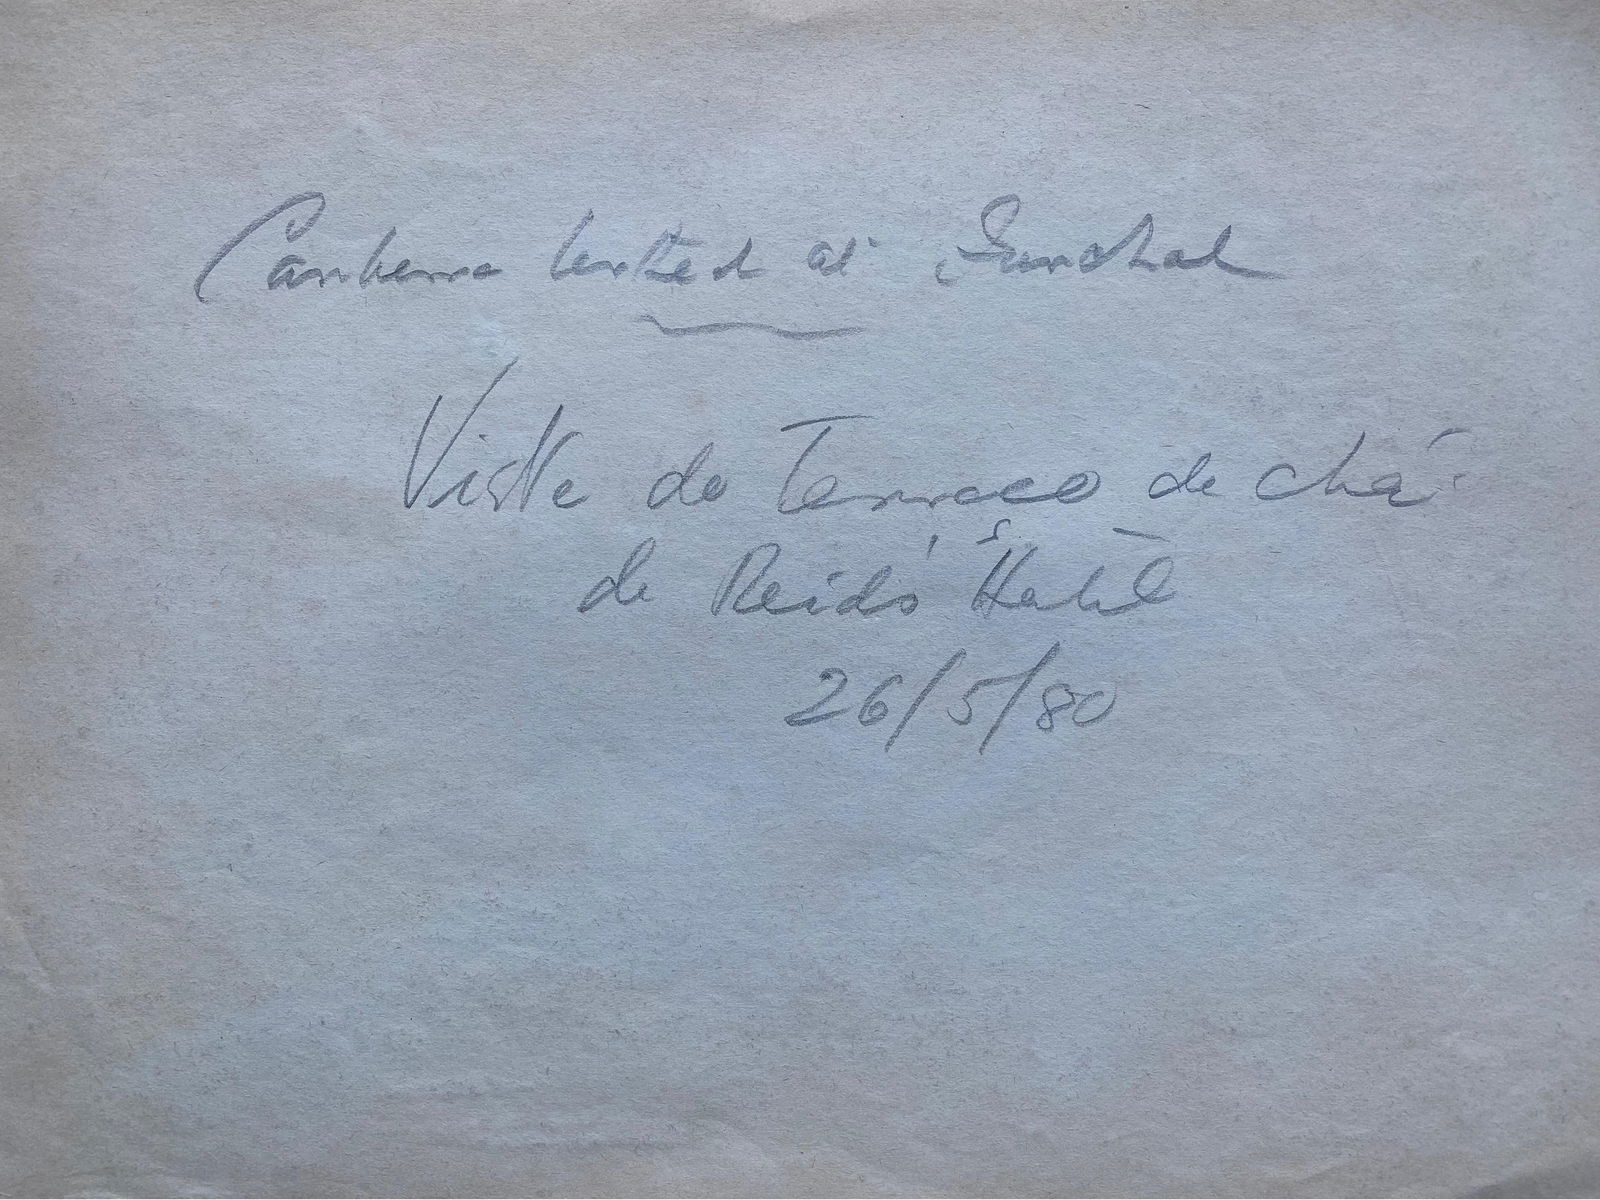 Canberra at Funchal
Vista do Terraco de chá
do Reid's Hotel
26/5/80